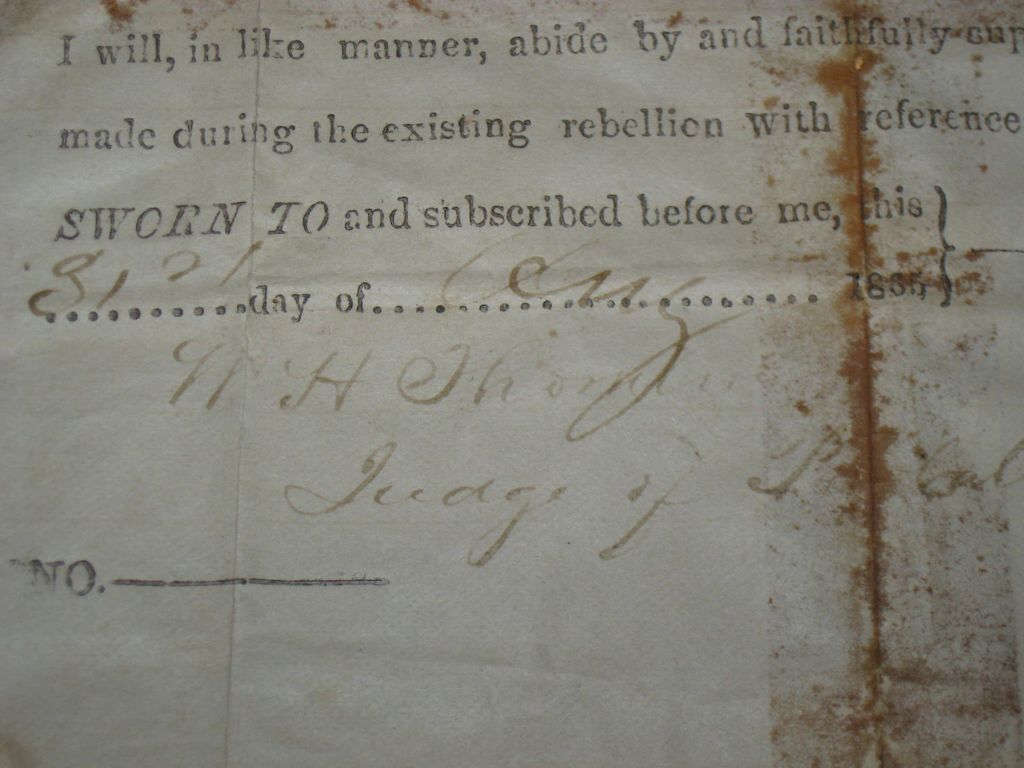 I will, in like manner, abide by and faithfully sup
made during the existing rebellion with reference
SWORN TO and subscribed before me, this }
31st day of Aug 1865,
W H Thomas
Judge of Probat
NO.